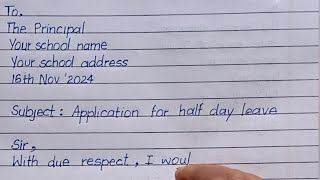 To,
The Principal
Your school name
Your school address
15th Nov '2024
Subject: Application for half day leave
Sir,
With due respect, I woul